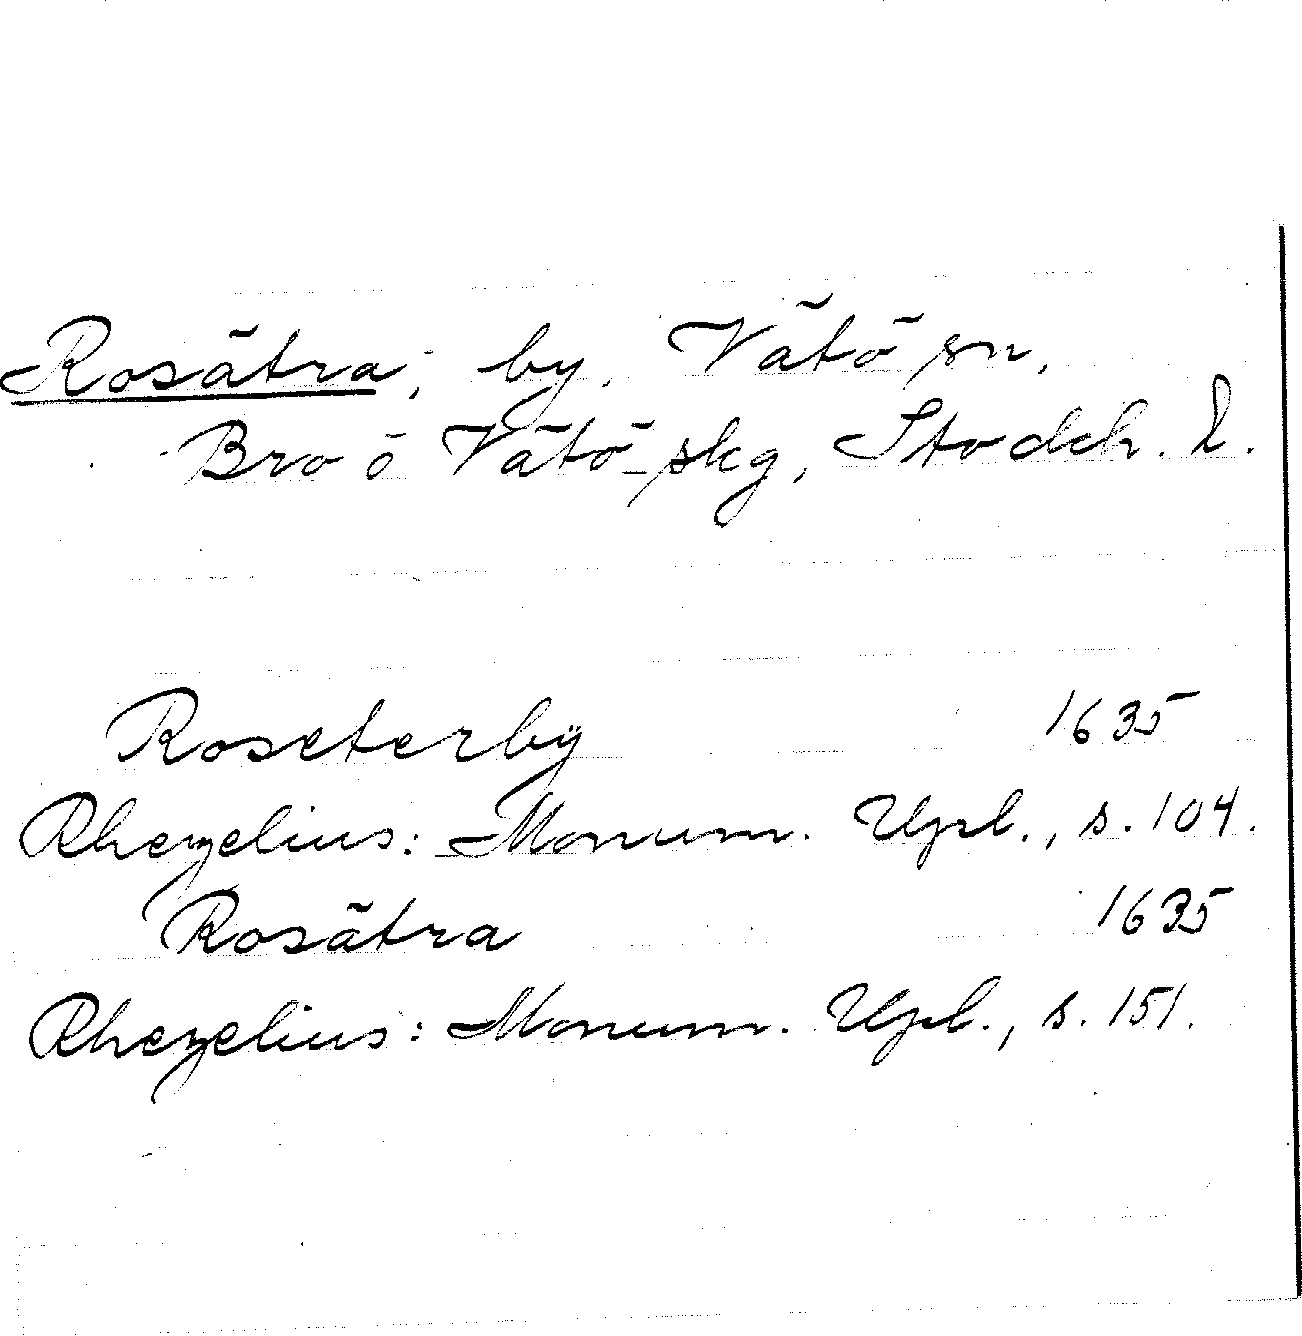 Rosätra, by, Vätö sn,
Bro o Vätö skg, Stockh. l.
Roseterby 1635
Rhezelius: Monum. Upl., s. 104.
Rosätra 1635
Rhezelius: Monum. Upl., s. 151.